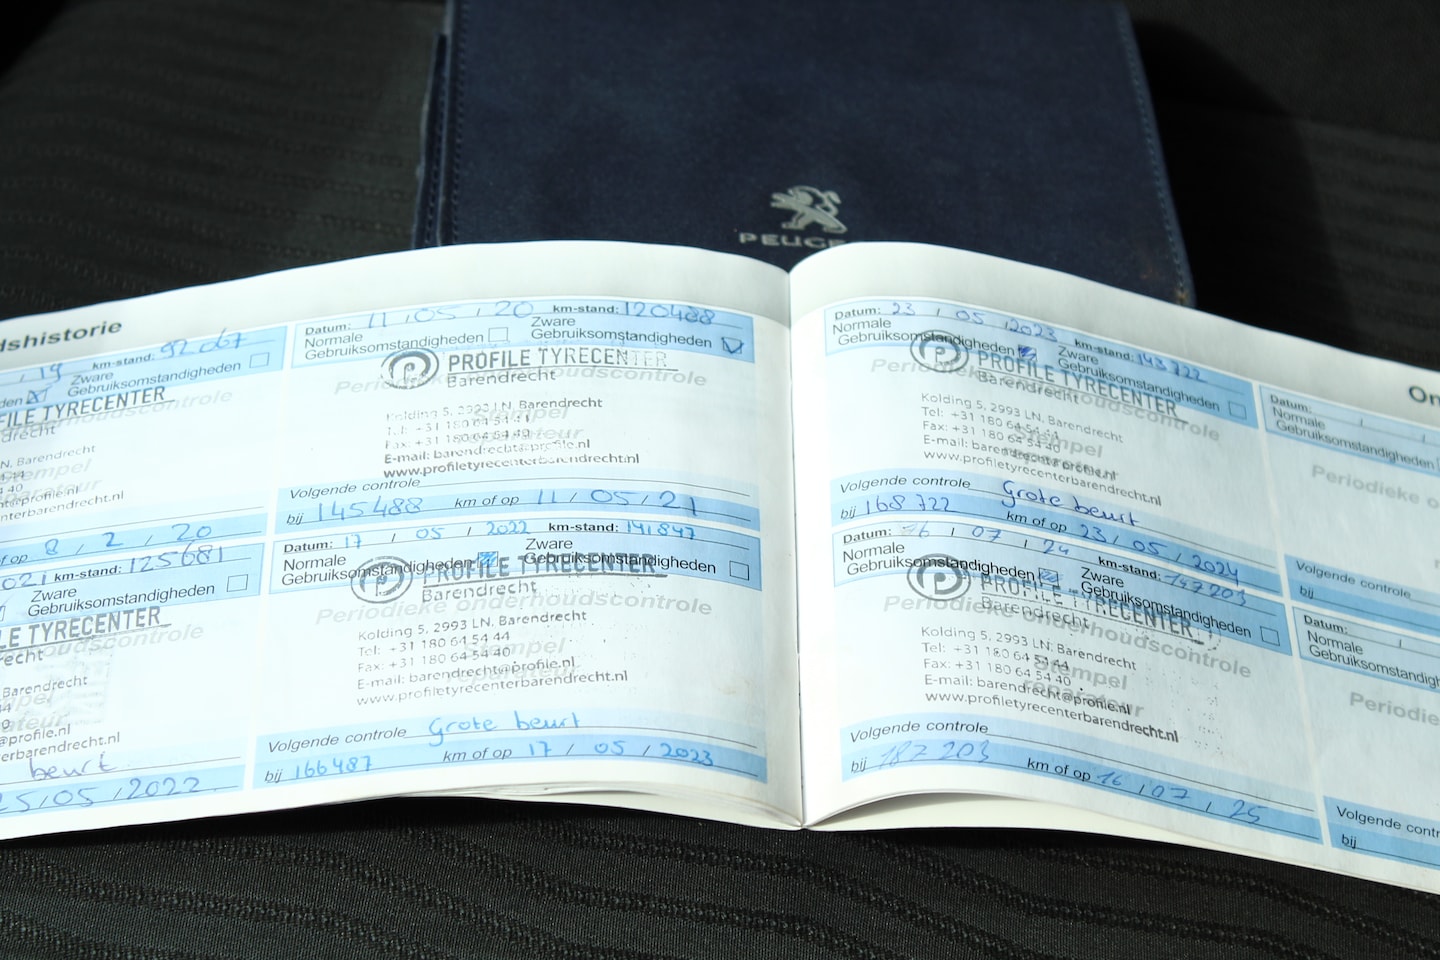 PEUGE
dshistorie
19 km-stand: 92067
den Zware
Gebruiksomstandigheden
FILE TYRECENTER
drecht
N. Barendrecht
@profile.nl
enterbarendrecht.nl
of op 8 / 2 / 20
2021 km-stand: 125681
Zware
Gebruiksomstandigheden
LE TYRECENTER
echt
Barendrecht
@profile.nl
terbarendrecht.nl
beurt
25/05/2022
Datum: 11 / 05 / 20 km-stand: 120488
Normale Zware
Gebruiksomstandigheden Gebruiksomstandigheden
PROFILE TYRECENTER
Barendrecht
Periodieke onderhoudscontrole
Kolding 5, 2993 LN, Barendrecht
Stempel
Tel: +31 180 64 54 44
Fax: +31 180 64 54 40
E-mail: barendrecht@profile.nl
www.profiletyrecenterbarendrecht.nl
Volgende controle
bij 145488 km of op 11 / 05 / 21
Datum: 17 / 05 / 2022 km-stand: 141847
Normale Zware
Gebruiksomstandigheden Gebruiksomstandigheden
PROFILE TYRECENTER
Barendrecht
Periodieke onderhoudscontrole
Kolding 5, 2993 LN, Barendrecht
Stempel
Tel: +31 180 64 54 44
Fax: +31 180 64 54 40
E-mail: barendrecht@profile.nl
www.profiletyrecenterbarendrecht.nl
Volgende controle Grote beurt
bij 166487 km of op 17 / 05 / 2023
Datum: 23 / 05 / 2023 km-stand: 143722
Normale Zware
Gebruiksomstandigheden Gebruiksomstandigheden
PROFILE TYRECENTER
Barendrecht
Periodieke onderhoudscontrole
Kolding 5, 2993 LN, Barendrecht
Tel: +31 180 64 54 44
Fax: +31 180 64 54 40
Stempel
E-mail: barendrecht@profile.nl
www.profiletyrecenterbarendrecht.nl
Volgende controle Grote beurt
bij 168722 km of op 23 / 05 / 2024
/ 07 / 24 km-stand: 147203
Normale Zware
Gebruiksomstandigheden Gebruiksomstandigheden
PROFILE TYRECENTER
Barendrecht
Periodieke onderhoudscontrole
Kolding 5, 2993 LN, Barendrecht
Tel: +31 180 64 54 44
Fax: +31 180 64 54 40
Stempel
E-mail: barendrecht@profile.nl
www.profiletyrecenterbarendrecht.nl
Volgende controle
bij 187203 km of op 16 / 07 / 25
On
Datum: / /
Normale
Gebruiksomstandigheden
Periodieke o
Volgende controle
bij
Datum: /
Normale
Gebruiksomstandigh
Periodie
Volgende contr
bij